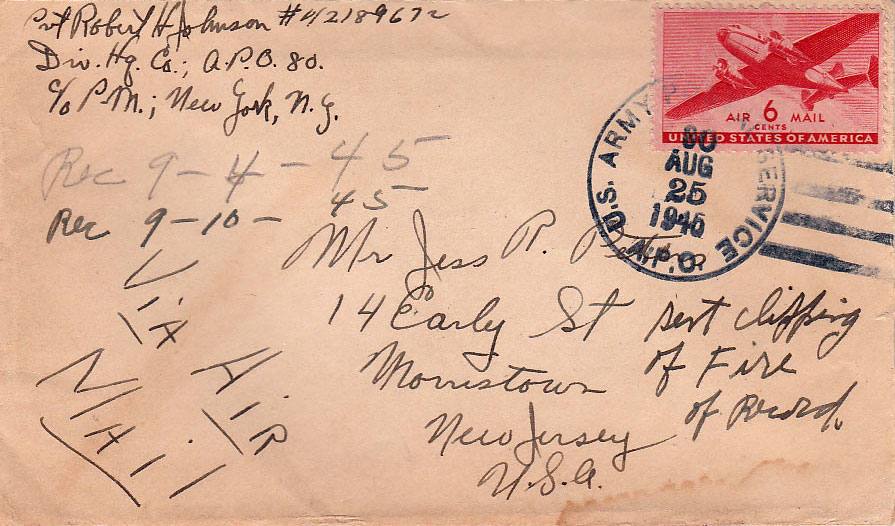 Pvt Robert H Johnson #42189672
Div. Hq. Co.; A.P.O. 80.
c/o P.M.; New York, N.Y.
AIR 6 MAIL
CENTS
UNITED STATES OF AMERICA
U.S. ARMY SERVICE
80
AUG
25
1945
A.P.O.
Rec 9-4-45
Rec 9-10-45
Mr Jess P.
14 Early St
Morristown
New Jersey
U.S.A.
Via
Air
Mail
sent clipping
of Fire
of Record.